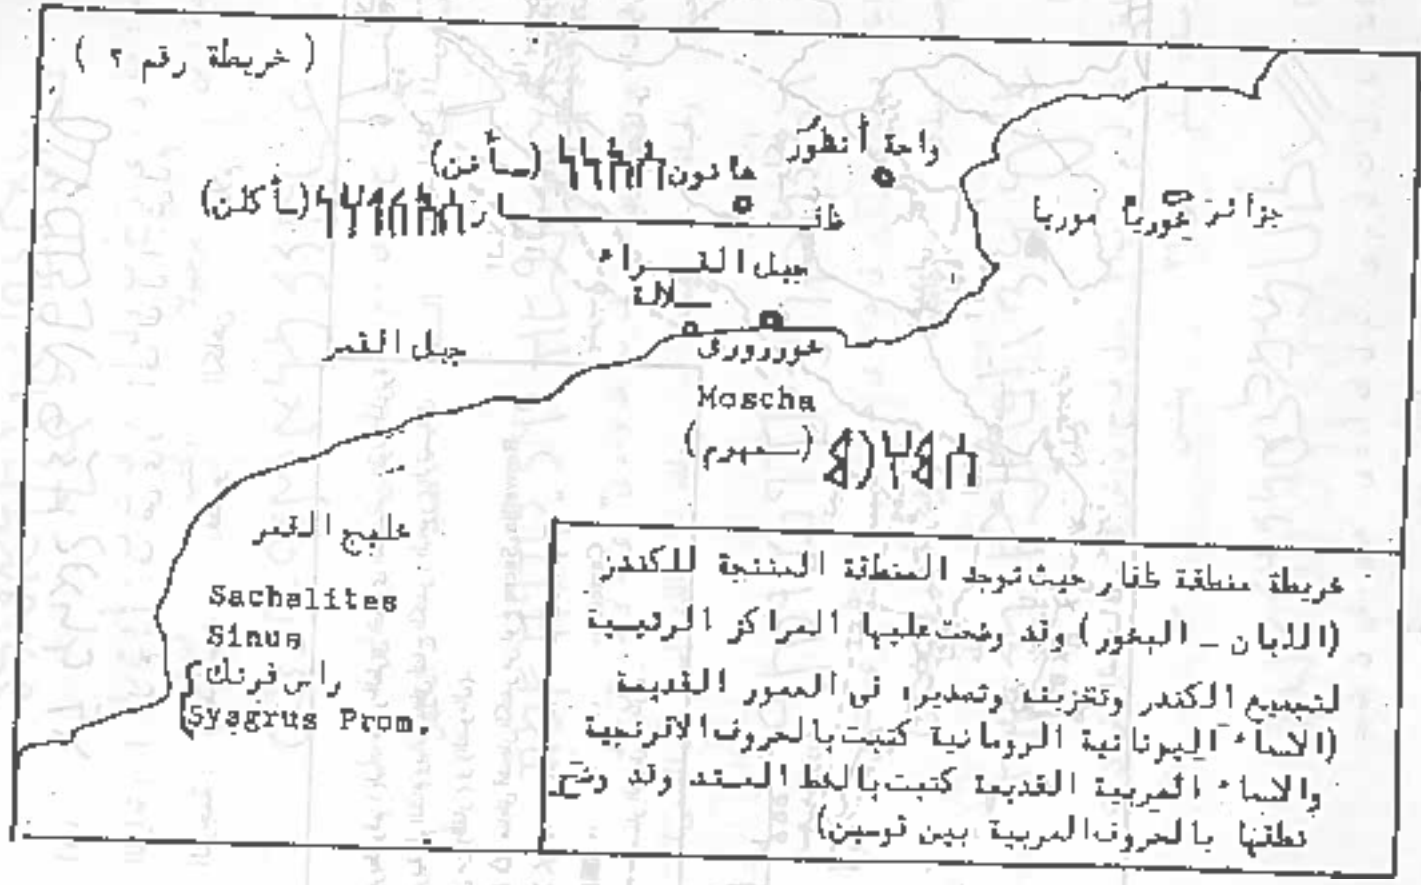 ( خريطة رقم ٢ )
واحة أنظور
هانون 𐩪𐩱𐩬𐩬 (سأنن)
ظفـــــــار (سأكلن)
جزائر خوريا موريا
جبل القـــراء
صـلالة
جبل القمر
خورروری
Moscha
(سمهرم)
خليج القمر
Sachalites
Sinus
راس فرتك
Syagrus Prom.
خريطة منطقة ظفار حيث توجد المنطقة المنتجة للكندر
(اللبان _ البخور) وقد وضحت عليها المراكز الرئيسية
لتجميع الكندر وتخزينه وتصديره فى العصور القديمة
(الاسماء اليونانية الرومانية كتبت بالحروف الافرنجية
والاسماء العربية القديمة كتبت بالخط المسند وقد وضح
نطقها بالحروف العربية بين قوسين)